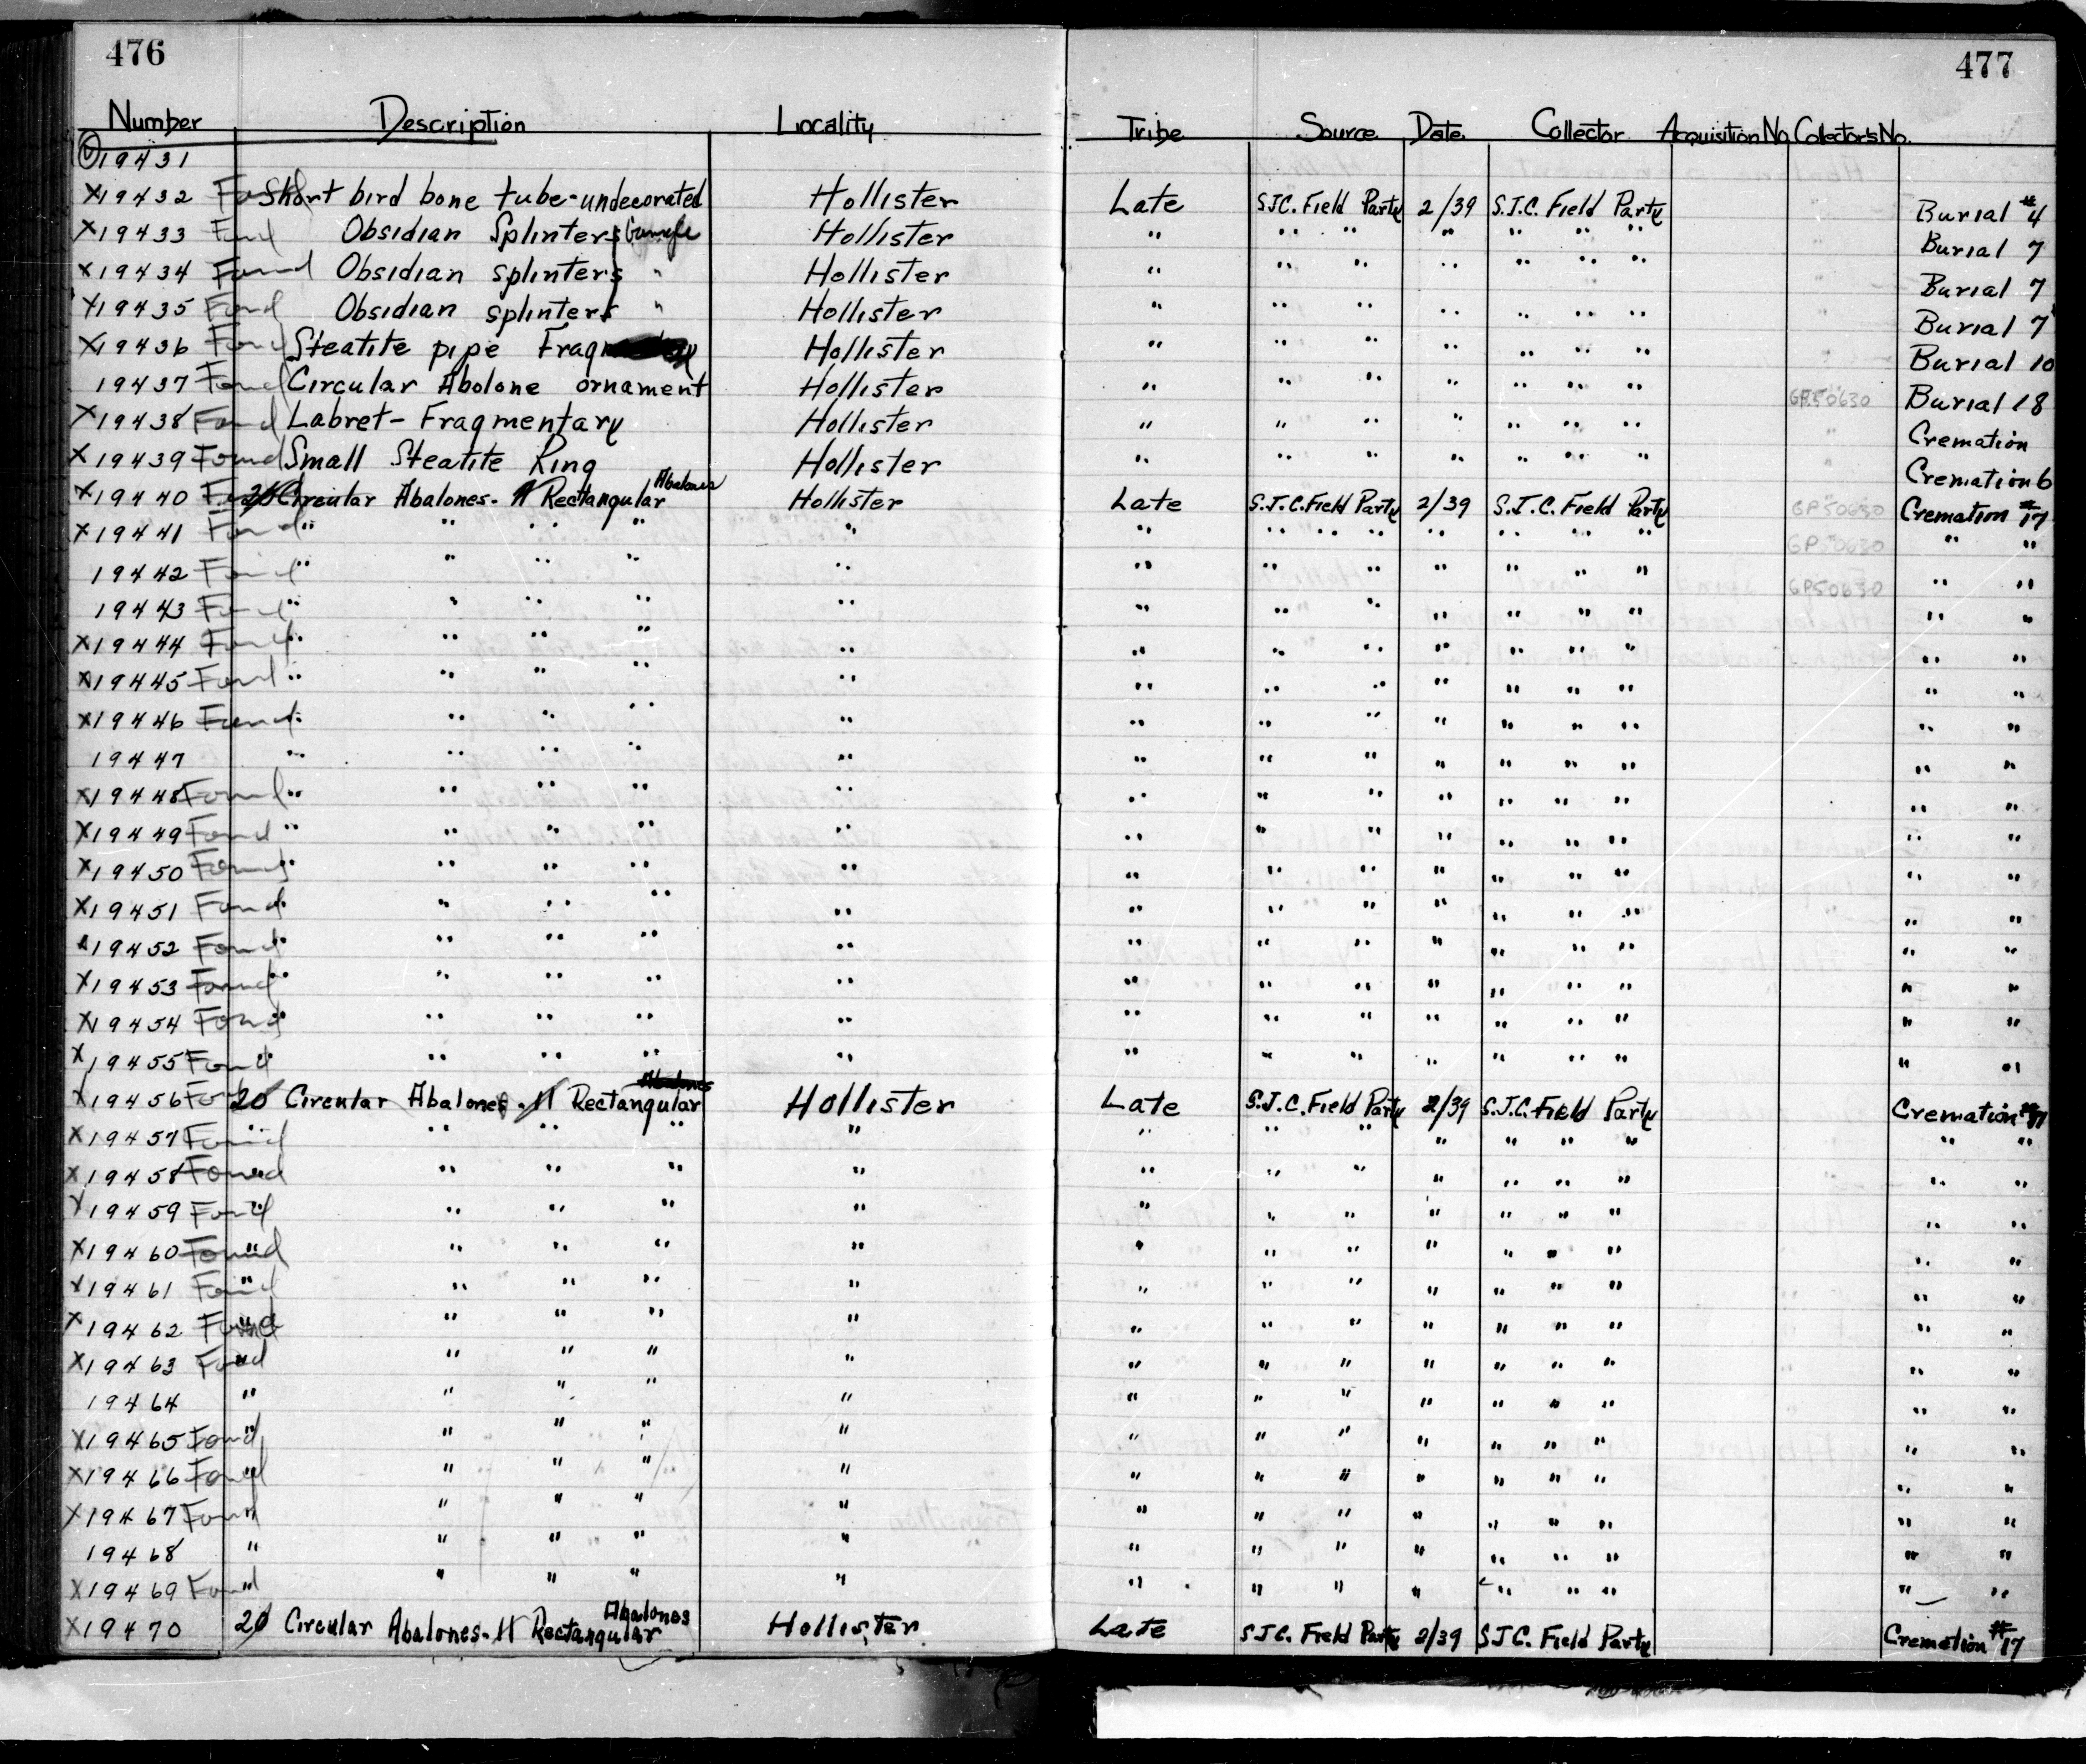 476
477
Number Description Locality Tribe Source Date Collector Acquisition No. Collector's No.
19431
X19432 Found Short bird bone tube-undecorated Hollister Late SJC. Field Party 2/39 S.J.C. Field Party Burial #4
X19433 Found Obsidian Splinters Hollister " " " " " " " " Burial 7
X19434 Found Obsidian splinters " Hollister " " " " " " " Burial 7
X19435 Found Obsidian splinters " Hollister " " " " " " " Burial 7
X19436 Found Steatite pipe Hollister " " " " " " " Burial 10
19437 Found Circular Abolone ornament Hollister " " " " " " " GP50630 Burial 18
X19438 Found Labret-Fragmentary Hollister " " " " " " " Cremation
X19439 Found Small Steatite Ring Hollister " " " " " " " Cremation 6
X19440 Found 20 Circular Abalones- 11 Rectangular Abalones Hollister Late S.J.C. Field Party 2/39 S.J.C. Field Party GP50630 Cremation #17
X19441 Found " " " " " " " " " " " " GP50630 " "
19442 Found " " " " " " " " " " " " GP50630 " "
19443 Found " " " " " " " " " " " " " "
X19444 Found " " " " " " " " " " " " " "
X19445 Found " " " " " " " " " " " " " "
X19446 Found " " " " " " " " " " " " " "
19447 " " " " " " " " " " " " " "
X19448 Found " " " " " " " " " " " " " "
X19449 Found " " " " " " " " " " " " " "
X19450 Found " " " " " " " " " " " " " "
X19451 Found " " " " " " " " " " " " " "
X19452 Found " " " " " " " " " " " " " "
X19453 Found " " " " " " " " " " " " " "
X19454 Found " " " " " " " " " " " " " "
X19455 Found " " " " " " " " " " " " " "
X19456 Found 20 Circular Abalones - 11 Rectangular Abalones Hollister Late S.J.C. Field Party 2/39 S.J.C. Field Party Cremation #17
X19457 Found " " " " " " " " " " " " " "
X19458 Found " " " " " " " " " " " " " "
X19459 Found " " " " " " " " " " " " " "
X19460 Found " " " " " " " " " " " " " "
X19461 Found " " " " " " " " " " " " " "
X19462 Found " " " " " " " " " " " " " "
X19463 Found " " " " " " " " " " " " " "
19464 " " " " " " " " " " " " " "
X19465 Found " " " " " " " " " " " " " "
X19466 Found " " " " " " " " " " " " " "
X19467 Found " " " " " " " " " " " " " "
19468 " " " " " " " " " " " " " "
X19469 Found " " " " " " " " " " " " " "
X19470 20 Circular Abalones- 11 Rectangular Abalones Hollister Late SJC. Field Party 2/39 SJC. Field Party Cremation #17